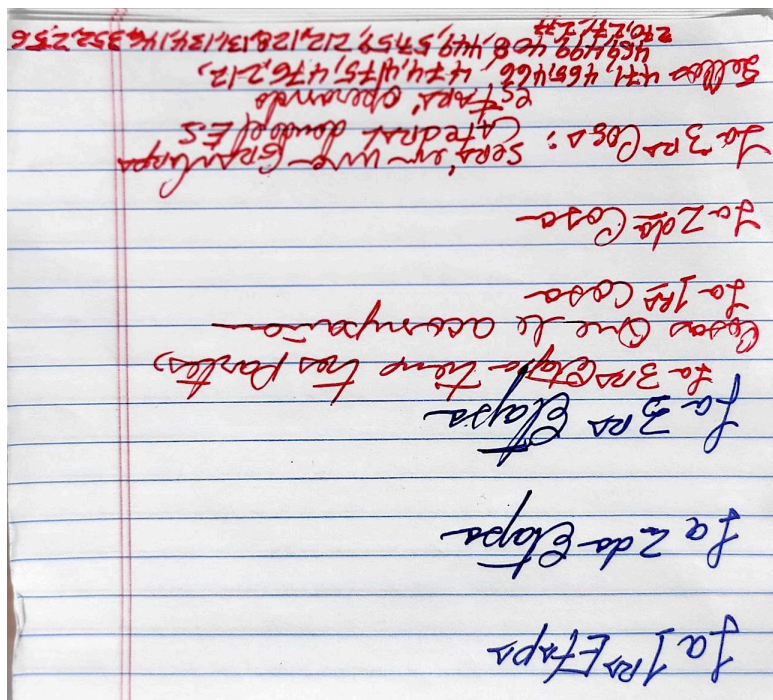 La 1ra Etapa
La 2da Etapa
La 3ra Etapa
La 3ra Etapa tiene tres partes,
Cosas que le acompañan
La 1ra Cosa
La 2da Cosa
La 3ra Cosa: será en una Gran Carpa
Catedral donde ES
estará operando
Sellos 471, 465, 466, 474, 475, 476, 212,
499, 408, 449, 57, 59, 212, 128, 131, 134, 146, 352, 256
270, 271, 277